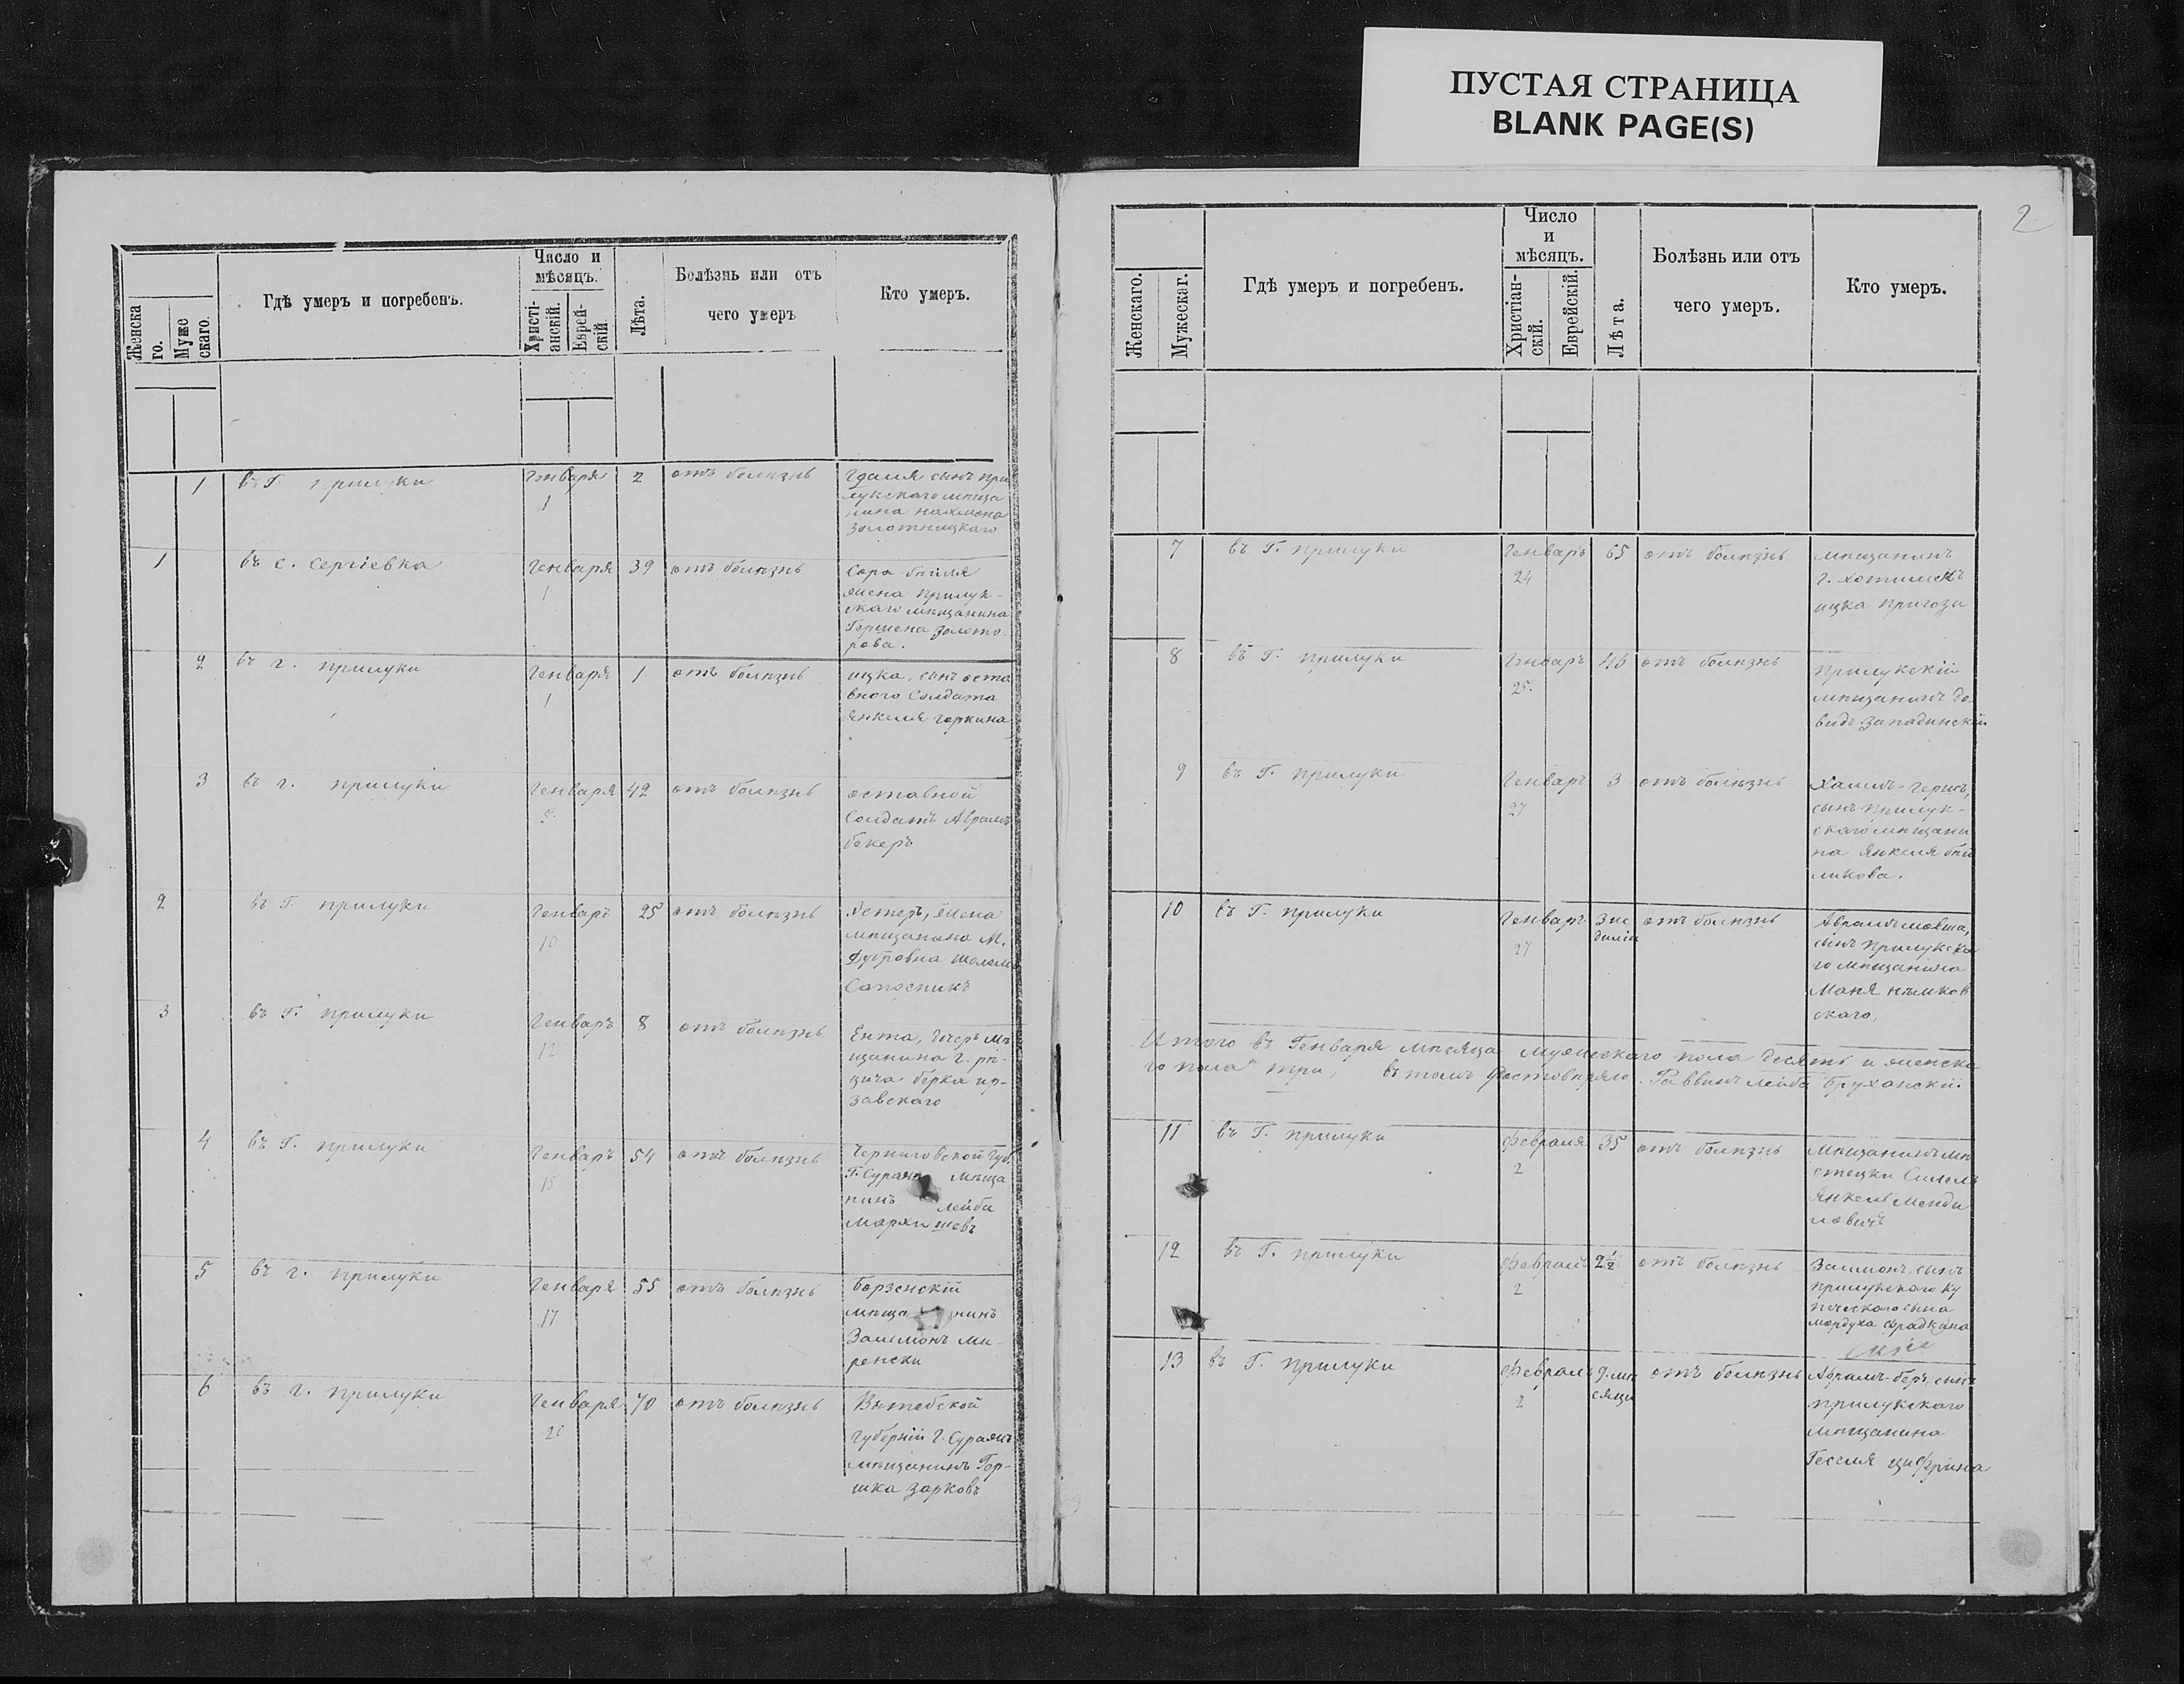 ПУСТАЯ СТРАНИЦА
BLANK PAGE(S)
Женска
го.
Муже
скаго.
Гдѣ умеръ и погребенъ.
Число и
мѣсяцъ.
Христі-
анскій.
Еврей-
скій
Лѣта.
Болѣзнь или отъ
чего умеръ
Кто умеръ.
1 въ Г. прилуки Генваря 1 2 отъ болѣзнь
Гдаля сынъ при
лукскаго мѣща
нина нахмена
Золотницкаго
1 въ с. Сергіевка Генваря 1 39 отъ болѣзнь
Сора бейля
жена прилук-
скаго мѣщанина
Гершена Золото-
рева.
2 въ г. прилуки Генваря 1 1 отъ болѣзнь
ицка, сынъ оста
вного Солдата
Янкеля Горкина
3 въ г. прилуки Генваря 5 42 отъ болѣзнь
оставной
Солдатъ Аврамъ
бекеръ
2 въ Г. прилуки Генваръ 10 25 отъ болѣзнь
Естеръ, жена
мѣщанина М.
Сапосникъ
3 въ Г. прилуки Генваръ 12 8 отъ болѣзнь
Ента, дочеръ мѣ
щанина г. рѣ-
чица берка
завскаго
4 въ Г. прилуки Генваръ 15 54 отъ болѣзнь
Черниговской губ.
Г. Суража мѣща
нинъ лейба
5 въ г. прилуки Генваря 17 55 отъ болѣзнь
борзенскій
мѣща нинъ
Залемонъ ми-
ренски
6 въ г. прилуки Генваря 20 70 отъ болѣзнь
Витебской
губерніи г. Суражъ
мѣщанинъ Гер-
шка Зарковъ
2
Женскаго.
Мужескаг.
Гдѣ умеръ и погребенъ.
Число
и
мѣсяцъ.
Христіан-
скій.
Еврейскій.
Лѣта.
Болѣзнь или отъ
чего умеръ.
Кто умеръ.
7 въ Г. прилуки Генваръ 24 65 отъ болѣзнь
мѣщанинъ
г. Хотимскъ
ицка пригози
8 въ Г. прилуки Генваръ 25. 45 отъ болѣзнь
Прилукскій
мѣщанинъ до-
видъ Западинскій
9 въ Г. прилуки Генваръ 27 3 отъ болѣзнь
Хаимъ-герсъ,
сынъ прилук-
скаго мѣщани
на Янкеля
ликова.
10 въ Г. прилуки Генваръ 27 3 не
дилѣи отъ болѣзнь
Аврамъ мовша,
сынъ прилукска
го мѣщанина
Маня
скаго,
Итого въ Генваря мѣсяца мужескаго пола десять и женска
го пола три, въ томъ Раввинъ лейба Бруханскій.
11 въ Г. прилуки Февраля 2 35 отъ болѣзнь
Мѣщанинъ мѣ
стечки
Янкель Менди
ловичъ
12 въ Г. прилуки Февраль 2 2½ отъ болѣзнь
Залмонъ, сынъ
прилукскаго ку
пческаго сына
мордуха Фрадкина
13 въ Г. прилуки Февраль 2 9. мѣ
сяци отъ болѣзнь
Аврамъ-беръ, сынъ
прилукскаго
мѣщанина
Геселя цифрина